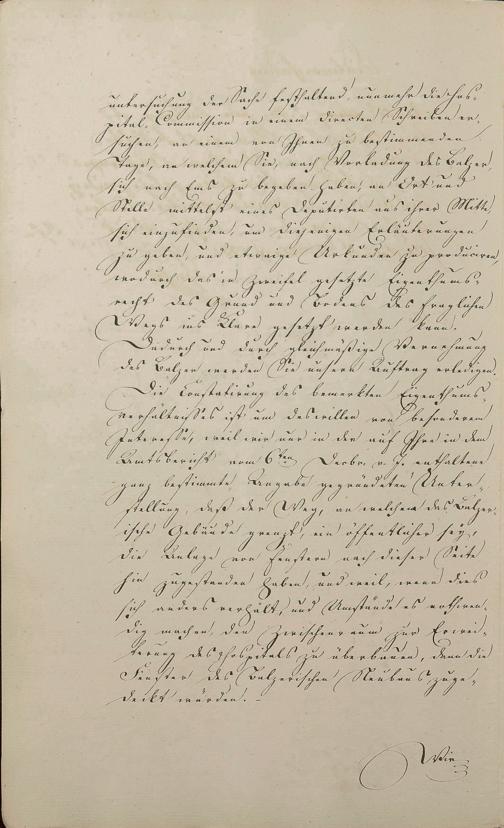 untersuchung der Sache festhaltend, nunmehr die Hos-
pital-Commission in einem directen Schreiben er-
suchen, an einem von Ihnen zu bestimmenden
Tage, an welchem Sie, nach Vorladung des Balzer,
sich nach Ems zu begeben haben, an Ort und
Stelle mittelst eines Deputirten aus ihrer Mitte
sich einzufinden, um diejenigen Erläuterungen
zu geben, und etwaige Urkunden zu produciren,
wodurch das in Zweifel gesetzte Eigenthums-
recht des Grund und Bodens des fraglichen
Wegs ins Klare gesetzt werden kann.
Dadurch und durch gleichmäßige Vernehmung
des Balzer werden Sie unsern Auftrag erledigen.
Die Constatirung des bemerkten Eigenthums-
verhältnisses ist um deswillen von besonderem
Interesse, weil wir nur in der auf Ihre in dem
Amtsbericht vom 6ten Decbr. v. J. enthaltene
ganz bestimmte Angabe gegründeten Unter-
stellung, daß der Weg, an welchem das Balzer-
ische Gebäude grenzt, ein öffentlicher sey,
die Anlage von Fenstern nach dieser Seite
hin zugestanden haben, und weil, wenn dies
sich anders verhält, und Umstände es nothwen-
dig machen, den Zwischenraum zur Erwei-
terung des Hospitals zu überbauen, dann die
Fenster des Balzerischen Neubaus zuge-
deckt würden. –
Wir